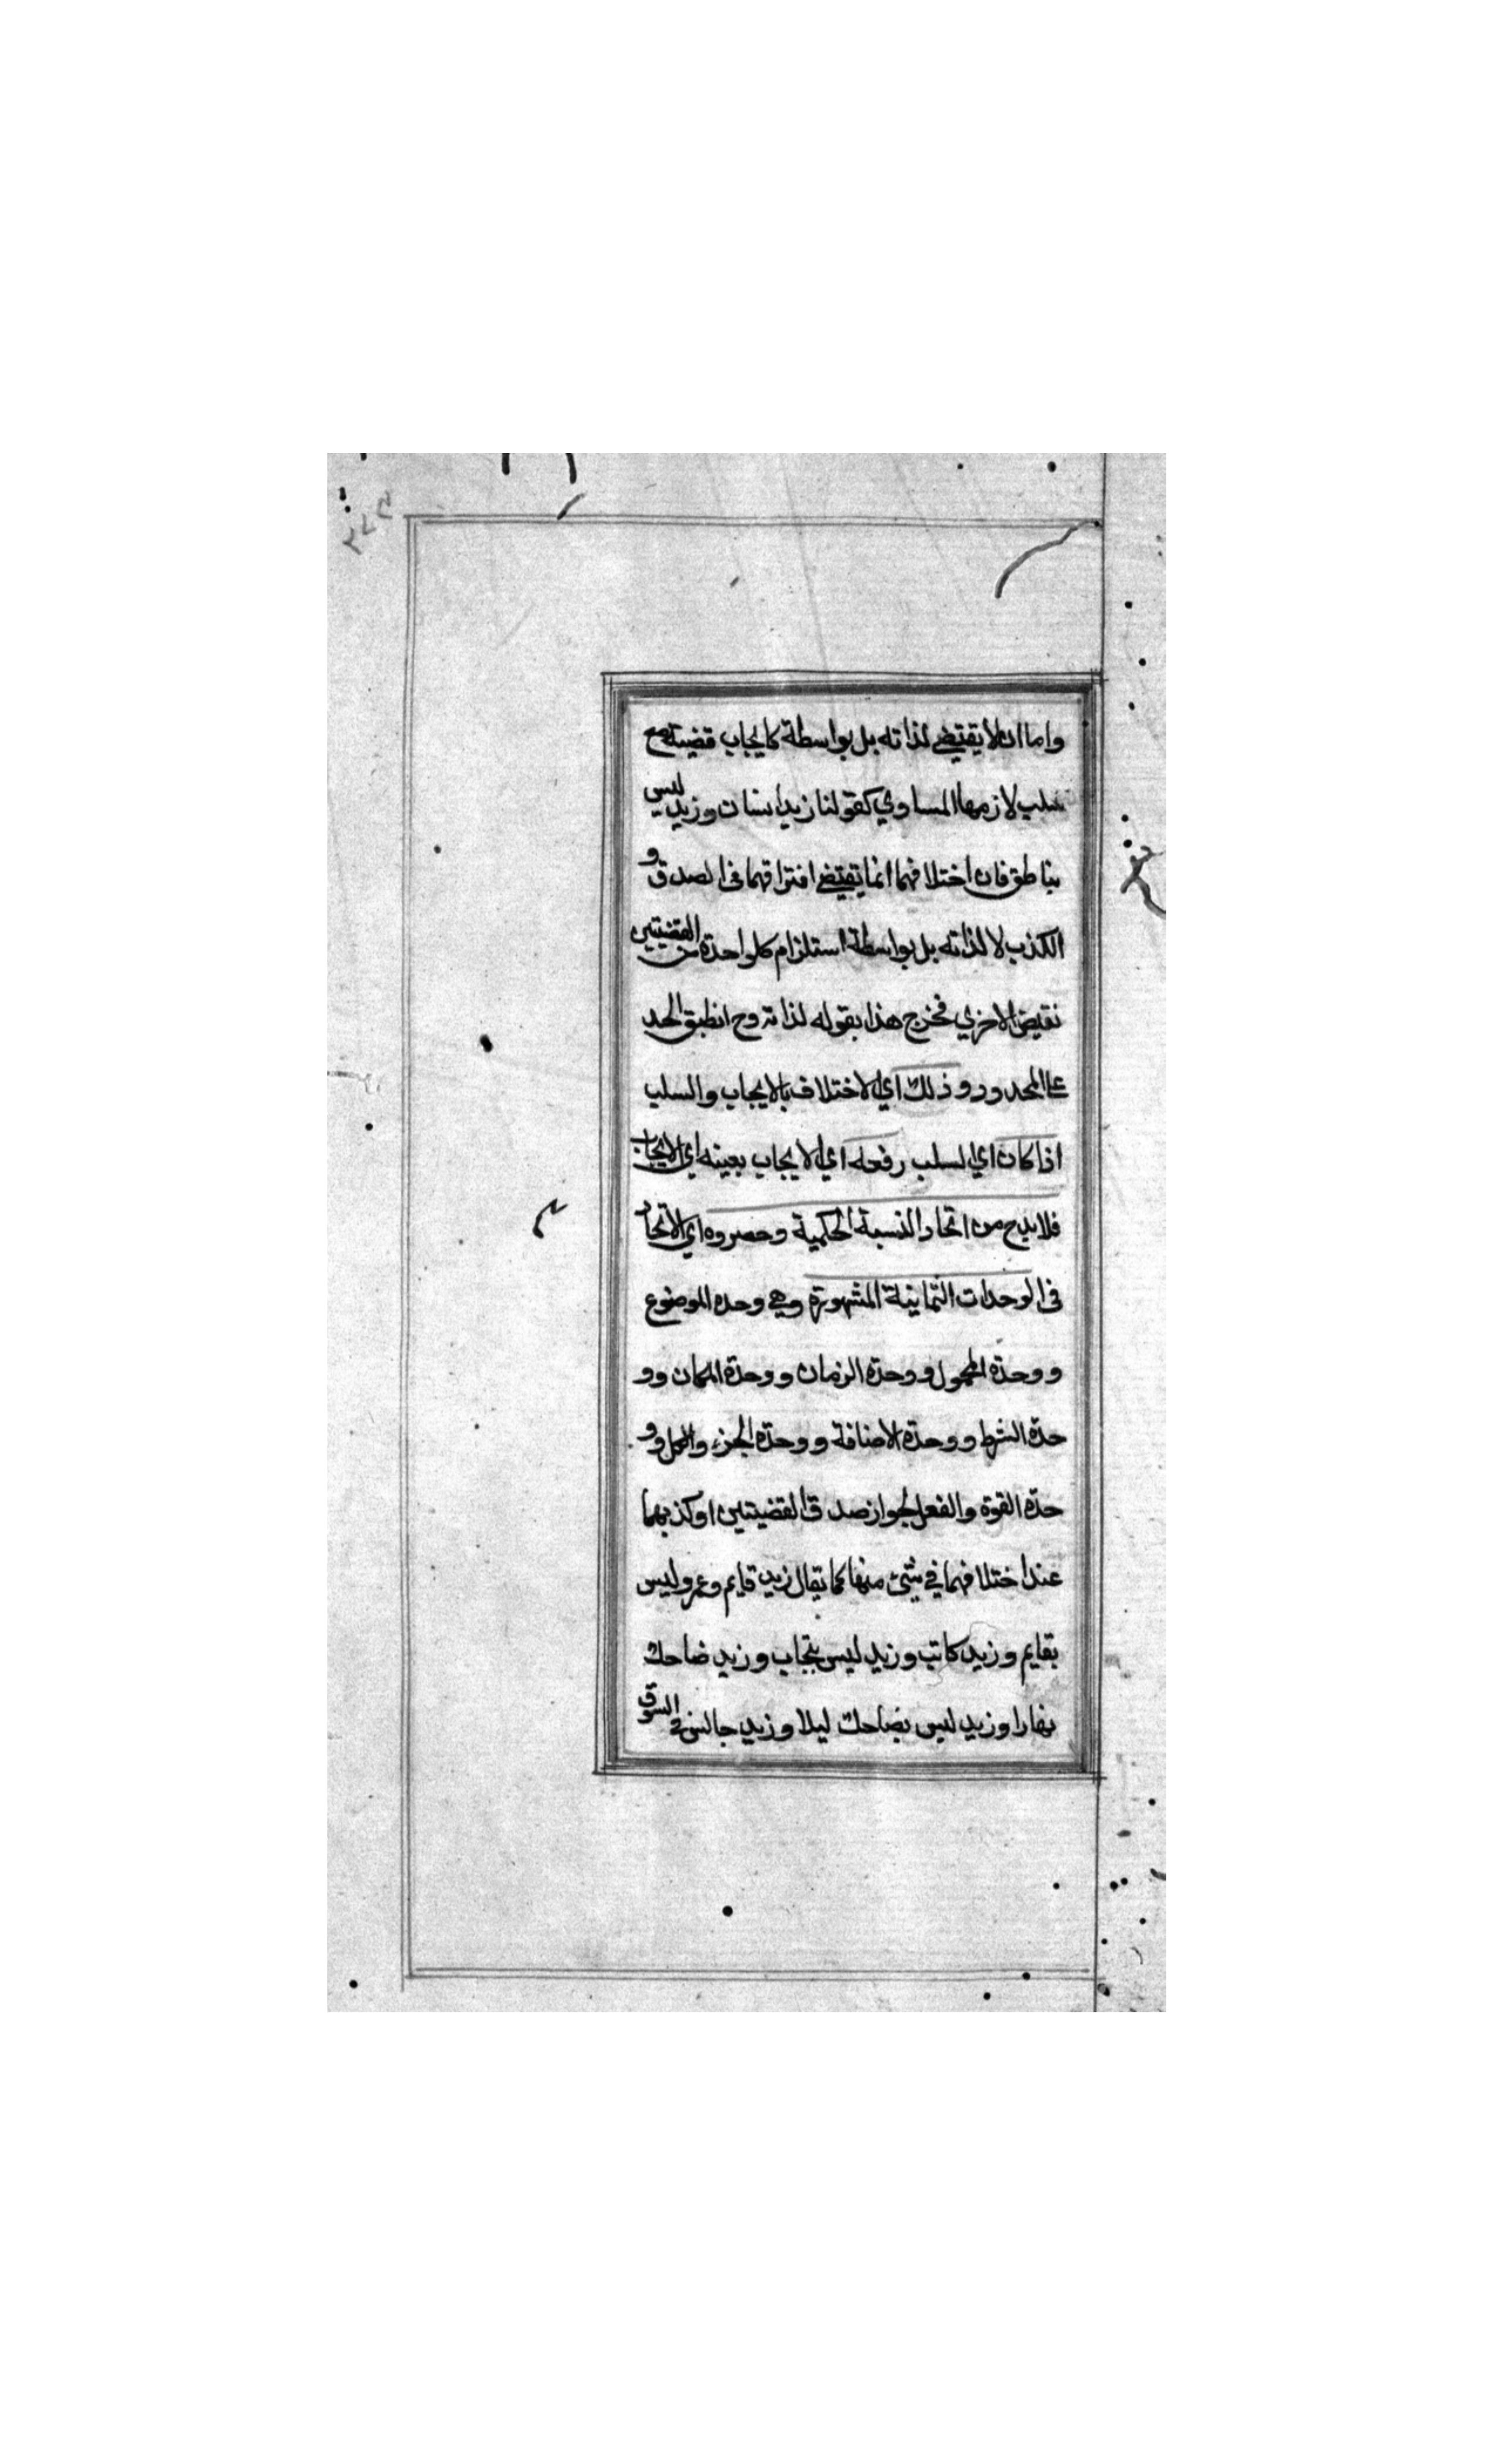 واما ان لا يقتضي لذاته بل بواسطة كايجاب قضية مع
سلب لازمها المساوي كقولنا زيد انسان وزيد ليس
بناطق فان اختلافهما انما يقتضي افتراقهما في الصدق و
الكذب لا لذاته بل بواسطة استلزام كل واحدة من القضيتين
نقيض الاخري فخرج هذا بقوله لذاته وح انطبق الحد
علي المحدود و ذلك اي الاختلاف بالايجاب والسلب
اذا كان اي السلب رفعه اي الايجاب بعينه اي الايجاب
فلا بد ح من اتحاد النسبة الحكمية وحصروه اي الاتحاد
في الوحدات الثمانية المشهورة وهي وحدة الموضوع
و وحدة المحمول و وحدة الزمان و وحدة المكان و و
حدة الشرط و وحدة الاضافة و وحدة الجزء والكل و و
حدة القوة والفعل لجواز صدق القضيتين او كذبهما
عند اختلافهما في شيئ منها كما يقال زيد قايم وعمرو ليس
بقايم وزيد كاتب وزيد ليس بنجاب وزيد ضاحك
نهارا وزيد ليس بضاحك ليلا وزيد جالس في السوق